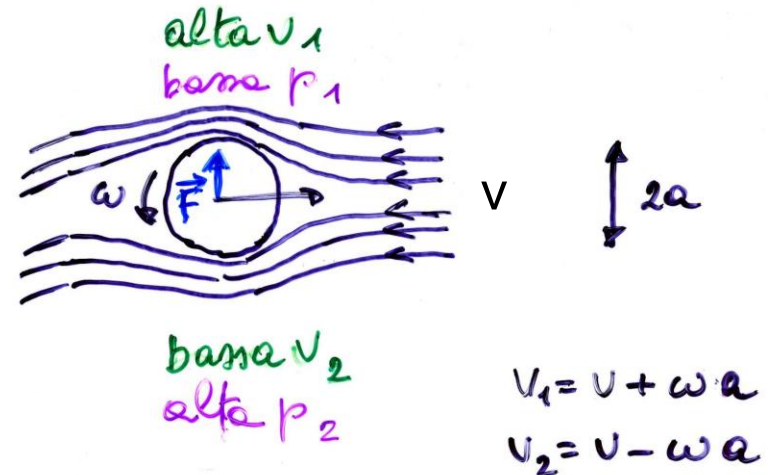 alta v₁
bassa p₁
ω
F⃗
V
2a
bassa v₂
alta p₂
v₁ = v + ω a
v₂ = v − ω a